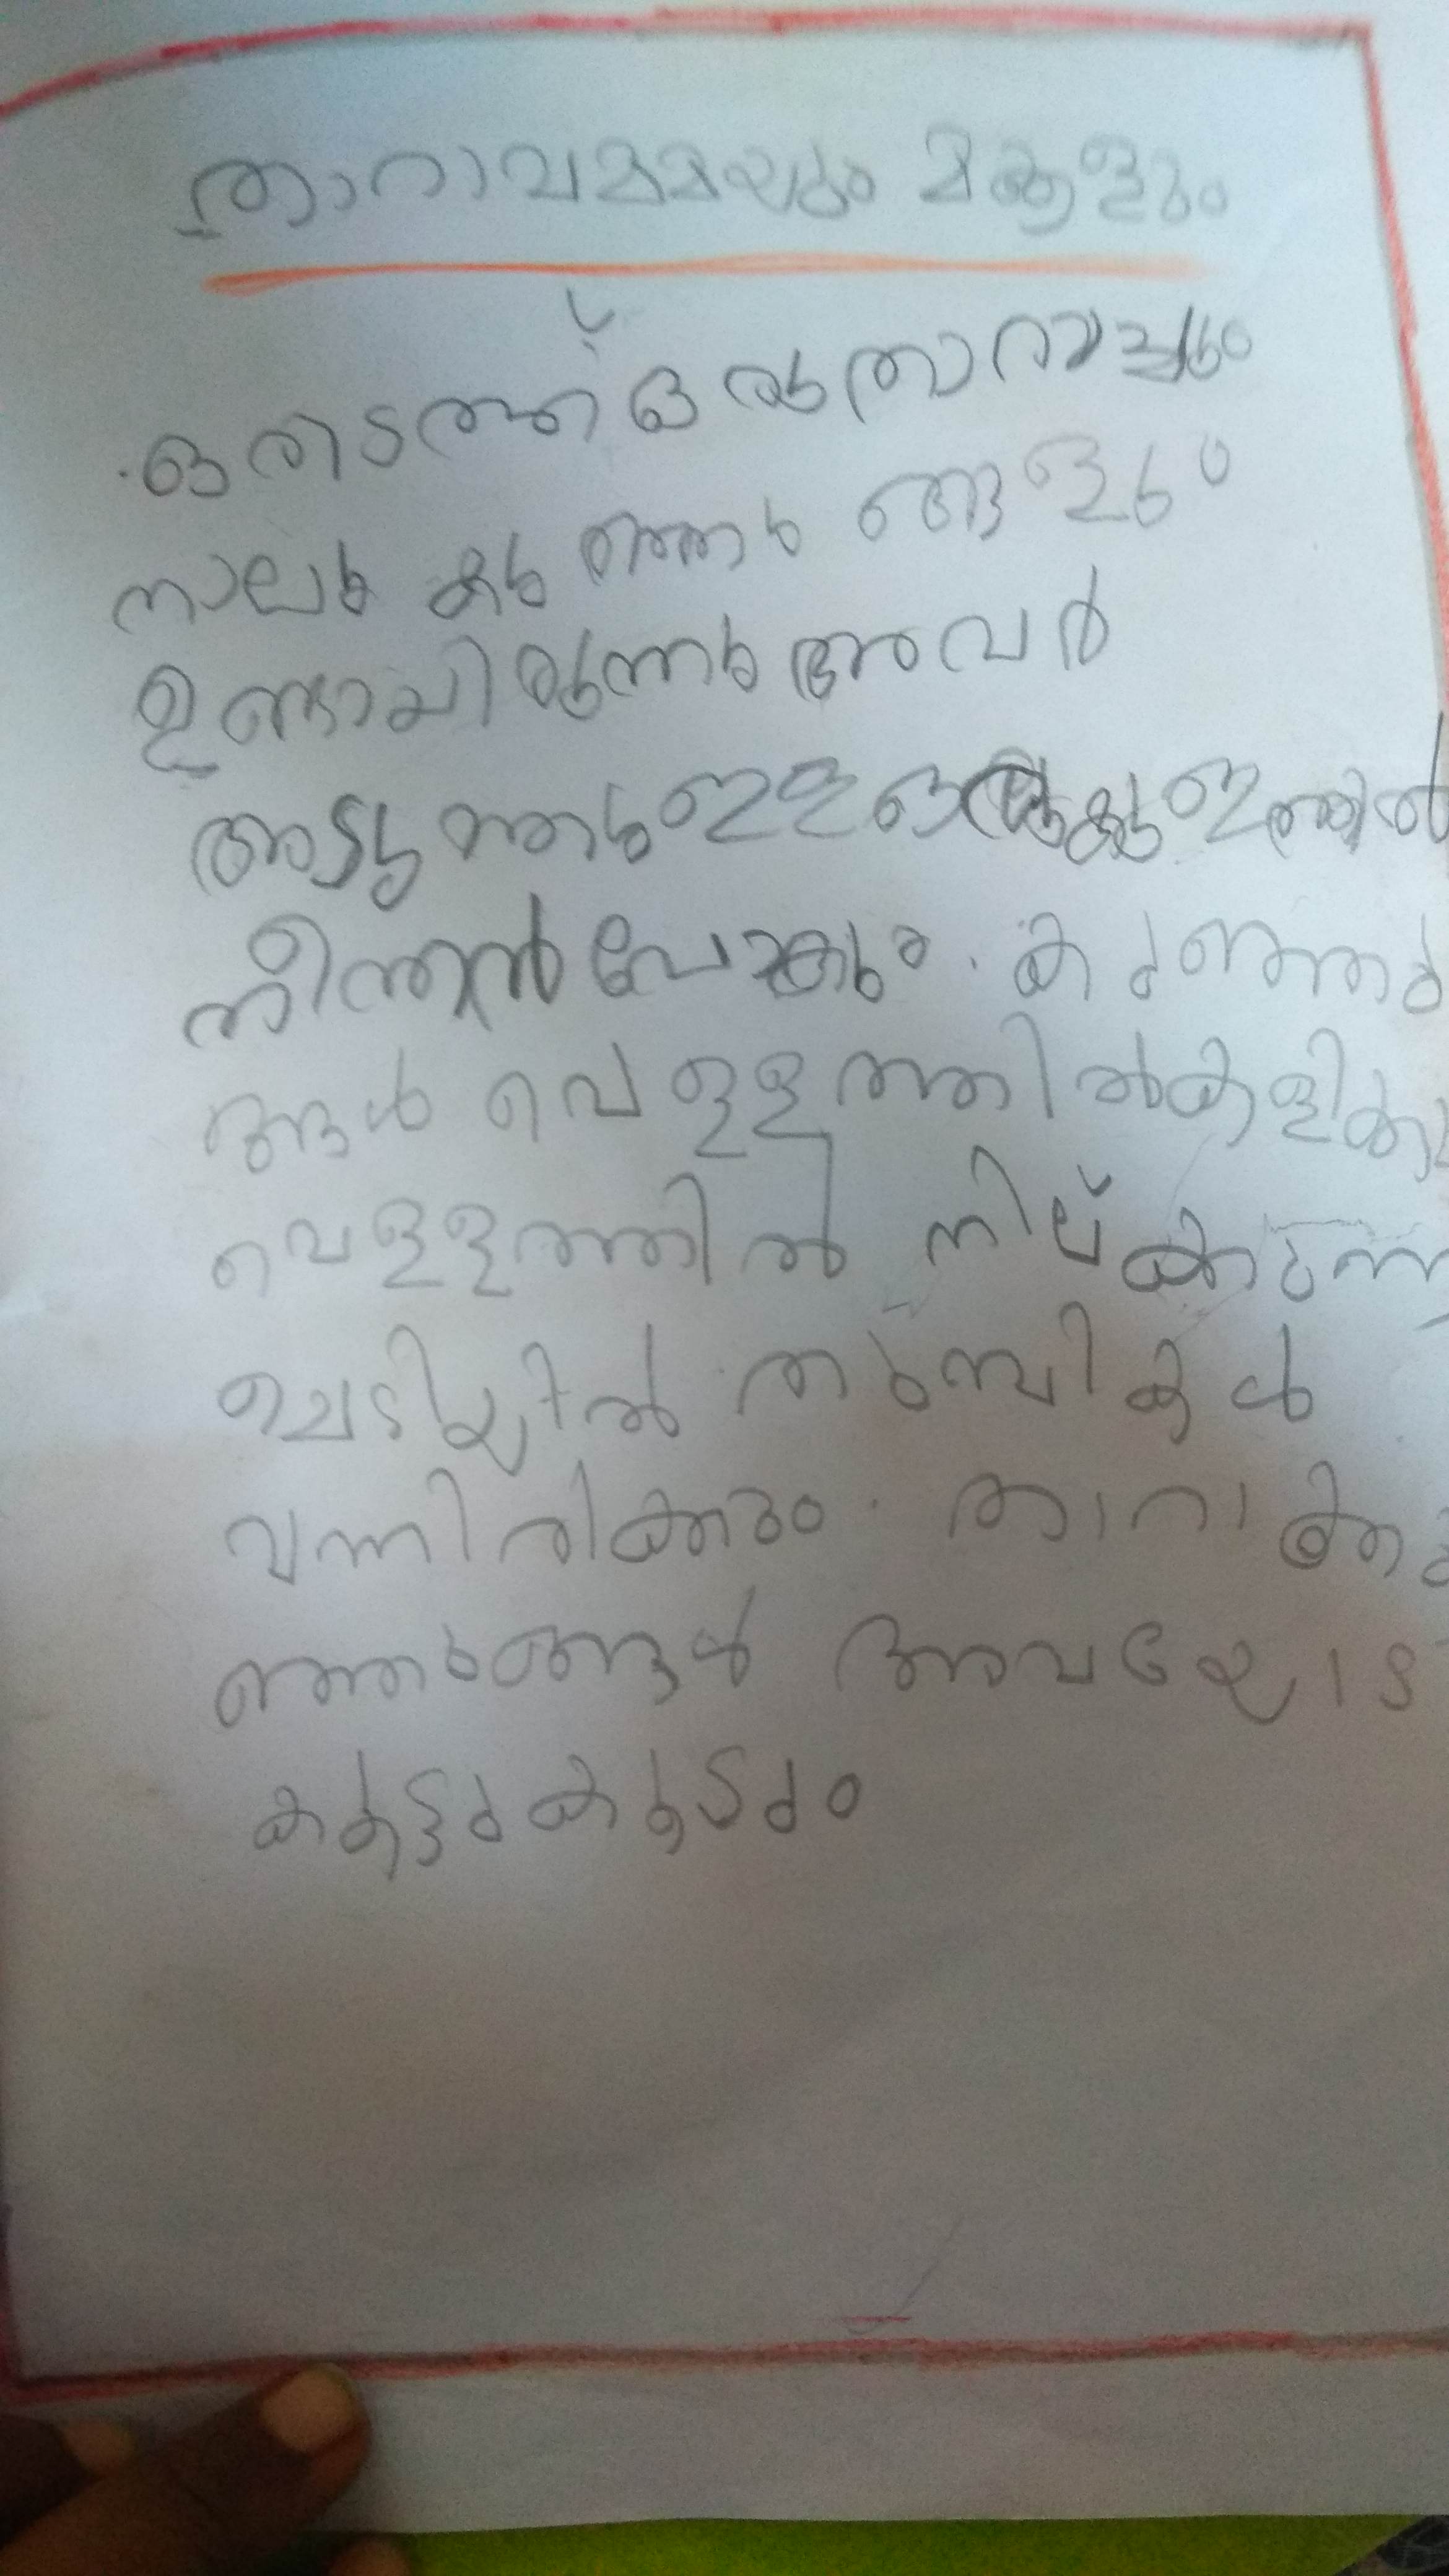 താറാവമമയും മകളും
ഒരിടത്ത് ഒരു താറാവും
നാലു കുഞ്ഞു ങ്ങളും
ഉണ്ടായിരുന്നു അവർ
അടുത്തുള്ള കുളത്തിൽ
നീന്താൻ പോകും. കുഞ്ഞു
ങ്ങൾ വെള്ളത്തിൽ കളിക്കു
വെള്ളത്തിൽ നില്ക്കുന്ന
ചെടിയിൽ തുമ്പികൾ
വന്നിരിക്കും. താറാക്കു
ഞ്ഞുങ്ങൾ അവയോട
കൂട്ടുകൂടും